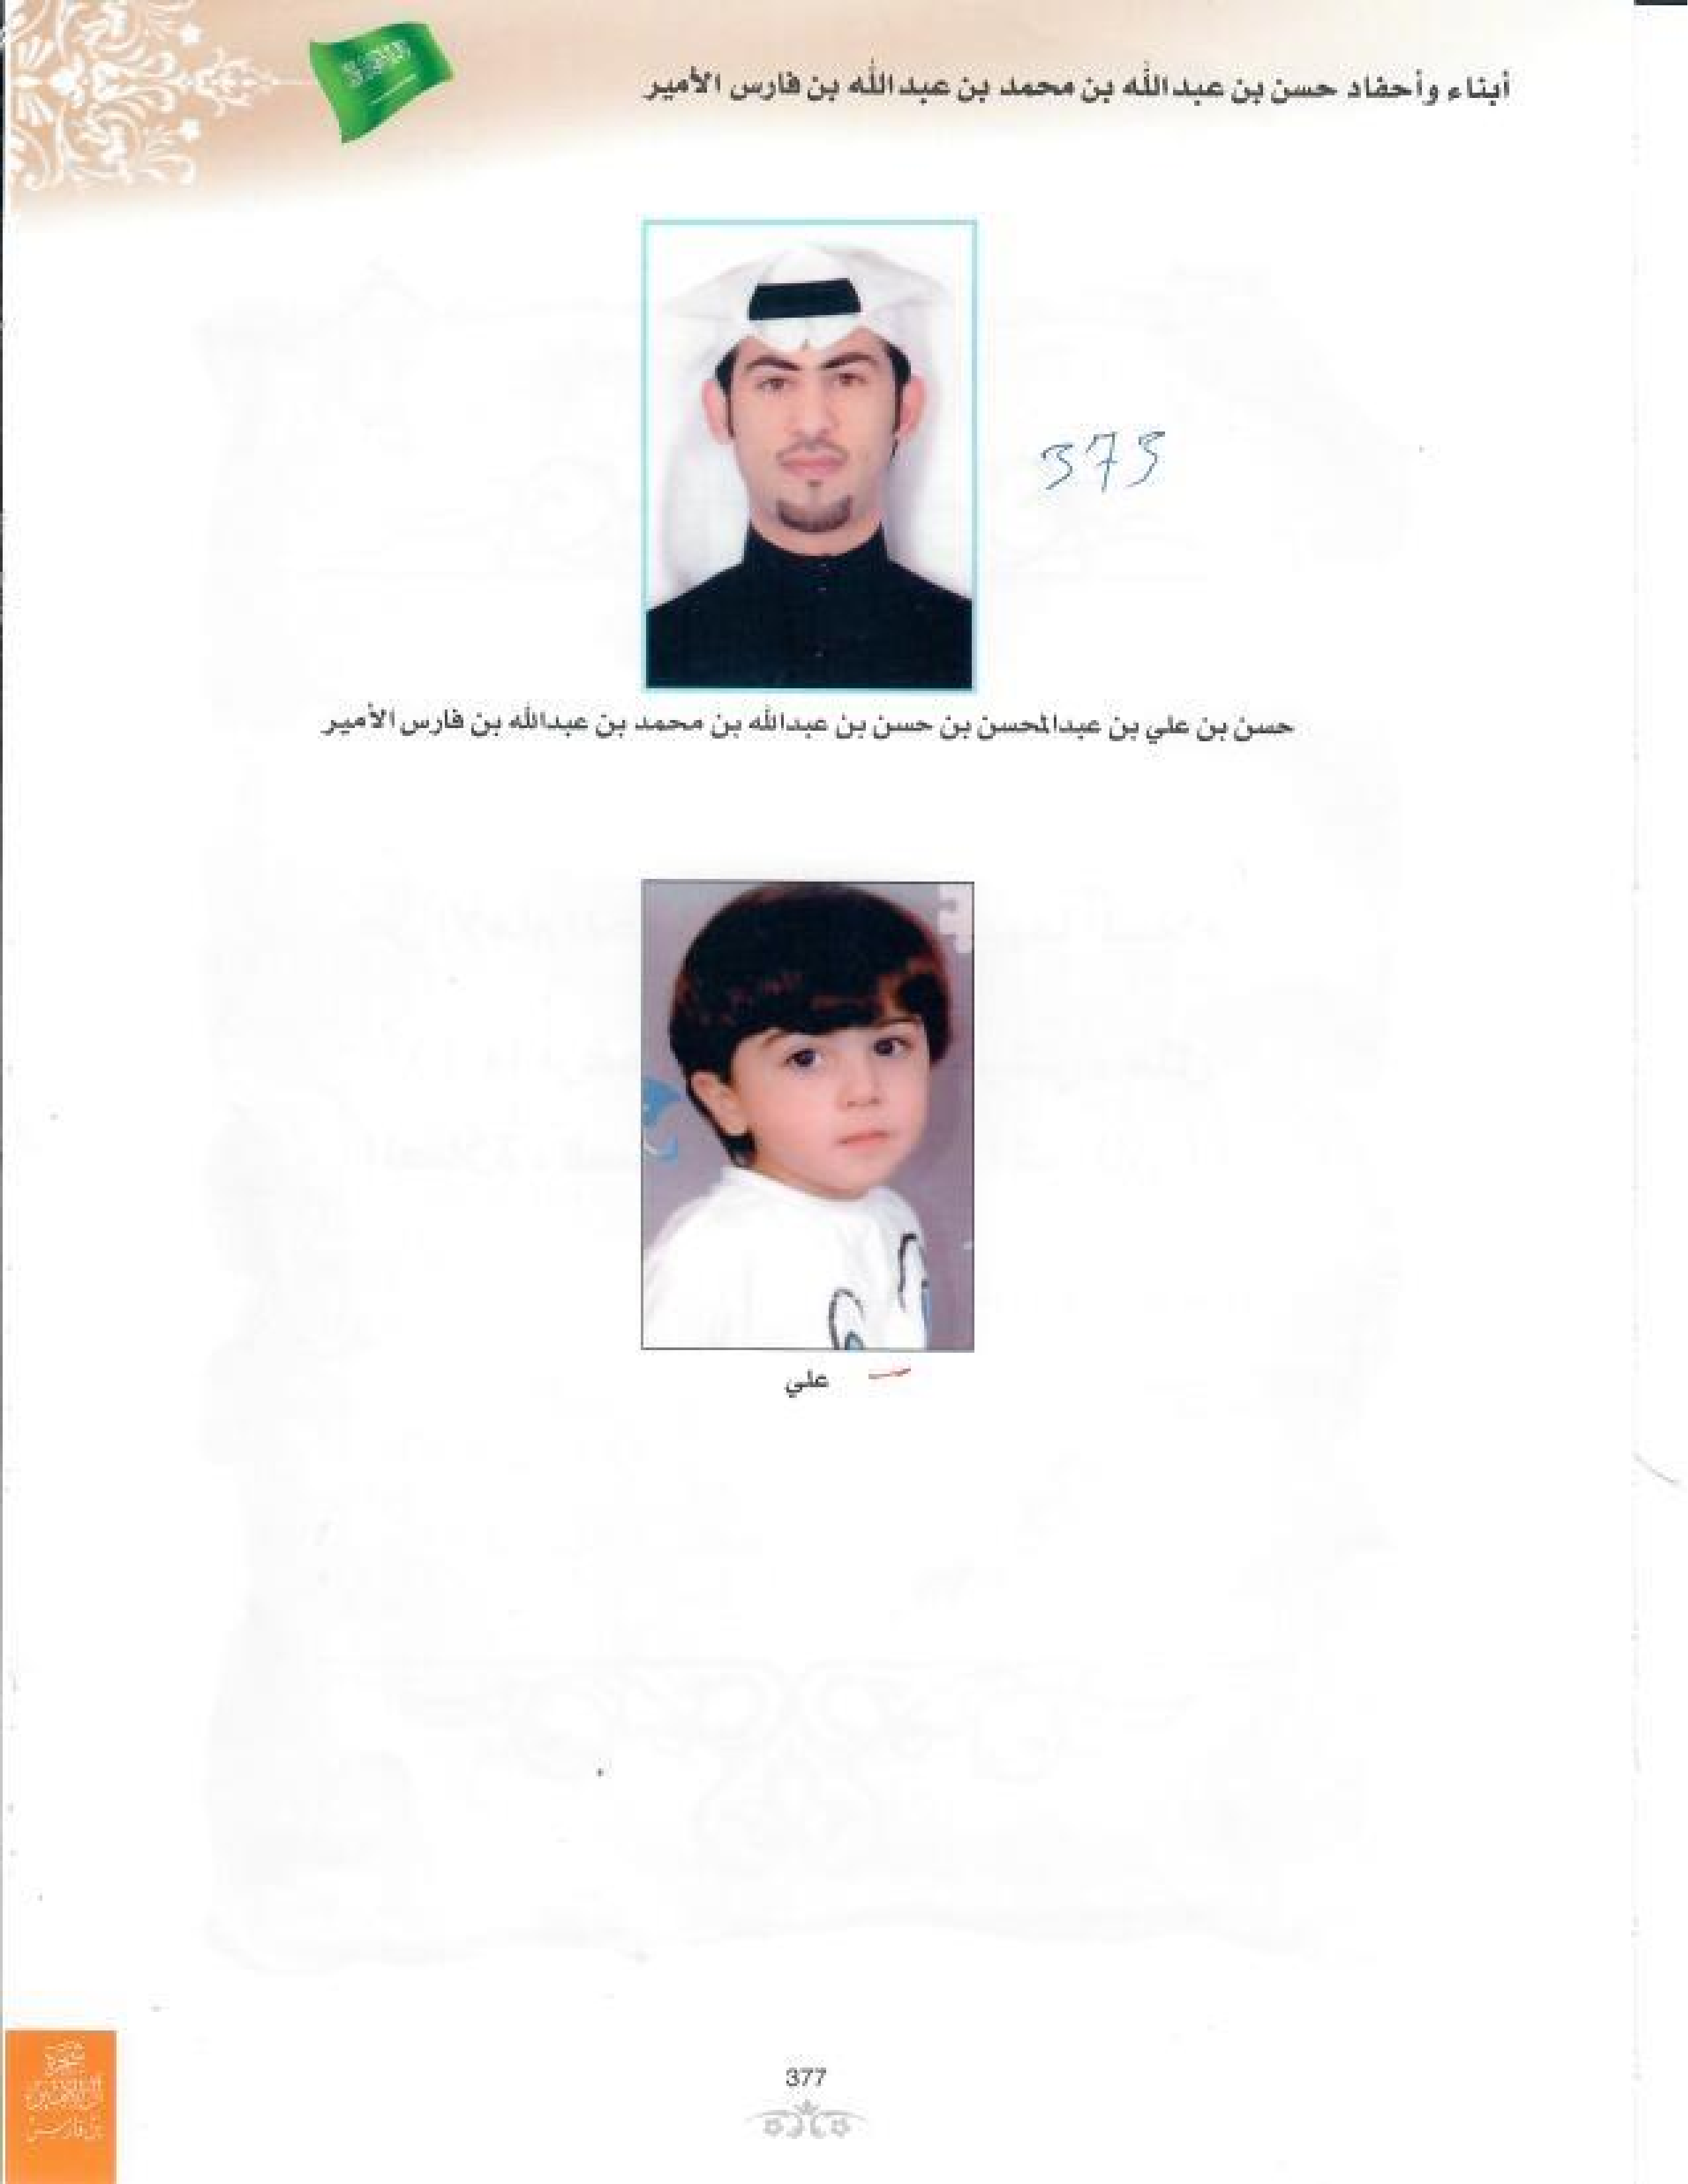 أبناء وأحفاد حسن بن عبدالله بن محمد بن عبدالله بن فارس الأمير
373
حسن بن علي بن عبدالمحسن بن حسن بن عبدالله بن محمد بن عبدالله بن فارس الأمير
علي
377
شجرة
بن فارس